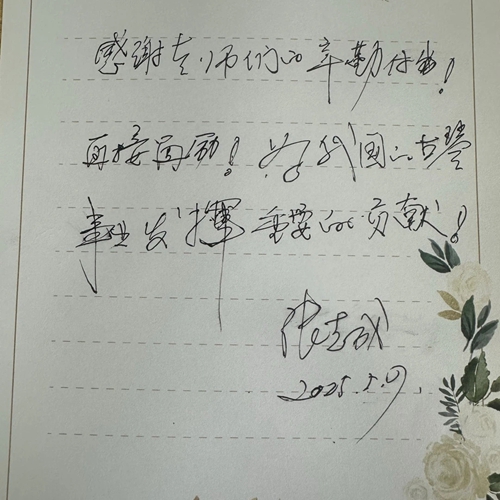 感谢老师们的辛勤付出！
再接再励！为我国的古琴
事业发挥重要的贡献！
张志成
2025.5.19.